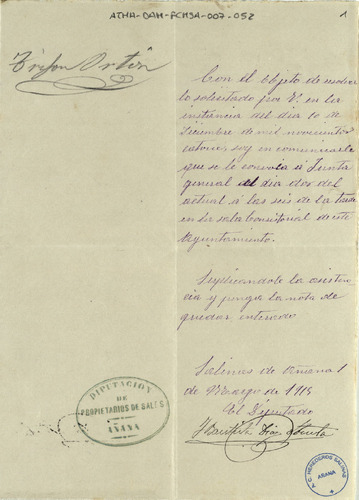 ATHA-DAH-FCHSA-007-052
1
Trifon Ortín
Con el objeto de resolver
lo solicitado por V. en la
instancia del día 10 de
Diciembre de mil novecientos
catorce, soy en comunicarle
que se le convoca á Junta
general el día dos del
actual á las seis de la tarde
en la sala Consistorial de este
Ayuntamiento.
Suplicandole la asisten
cia y ponga la nota de
quedar enterado
Salinas de Añana 1
de Marzo de 1915
El Diputado
DIPUTACION
DE
PROPIETARIOS DE SALES
AÑANA
A.C. HEREDEROS SALINAS
AÑANA